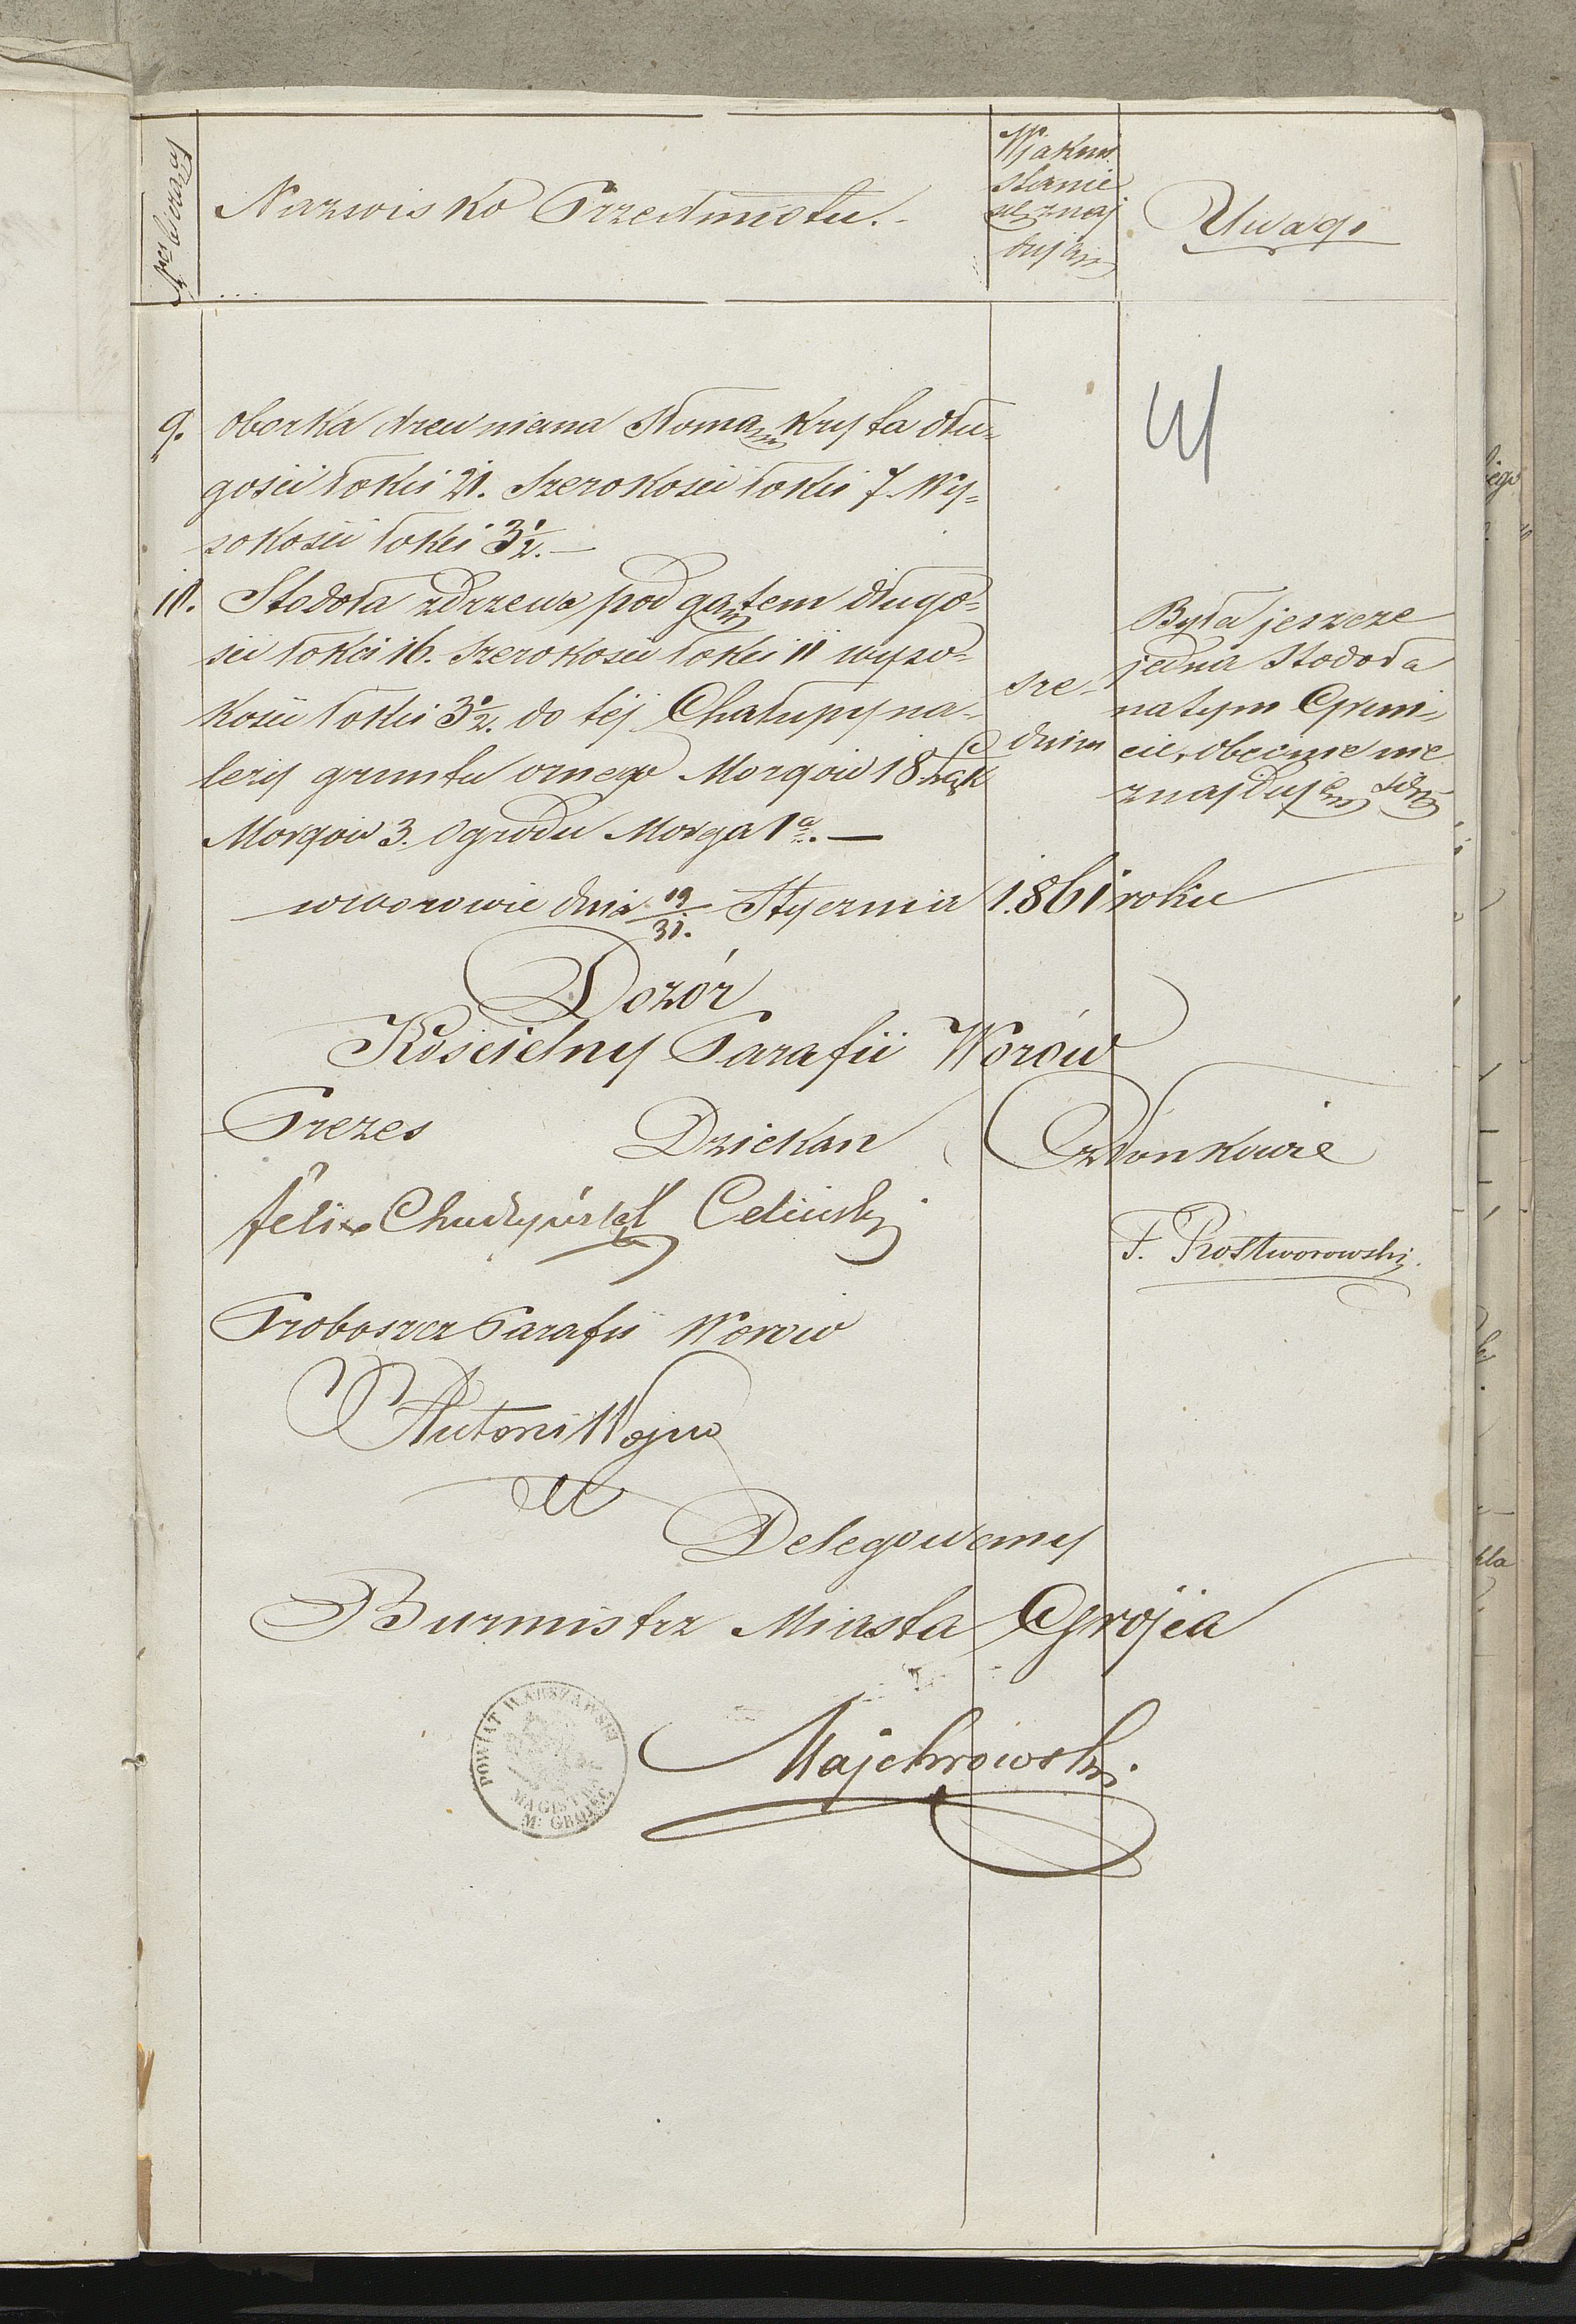 Nr bieżący
Nazwisko Przedmiotu.
W jakim
stanie
się znaj
dują
Uwagi
9. oborka drewniana słomą kryta dłu=
gości łokci 21. Szerokości łokci 7. Wy=
sokości łokci 3½.—
10. Stodoła z drzewa pod gątem długo=
ści łokci 16. Szerokości łokci 11 wyso=
kości łokci 3½. do tej Chałupy na=
leży gruntu ornego Morgów 18 Łąk
Morgów 3. Ogrodu Morga 1a.—
sre-
dnim
Była jeszcze
jedna Stodoła
na tym Grun=
cie, obecnie nie
znajduje się
w Worowie dnia 19/31. Stycznia 1861 roku
Dozór
Kościelny Parafii Worów
Prezes Dziekan Członkowie
Felix Celiński
F. Prostworowski.
Proboszcz Parafii Worów
Antoni Wojno
Delegowany
Burmistrz Miasta Grójca
POWIAT WARSZAWSKI
MAGISTRAT
M. GROJEC
Majchrowski